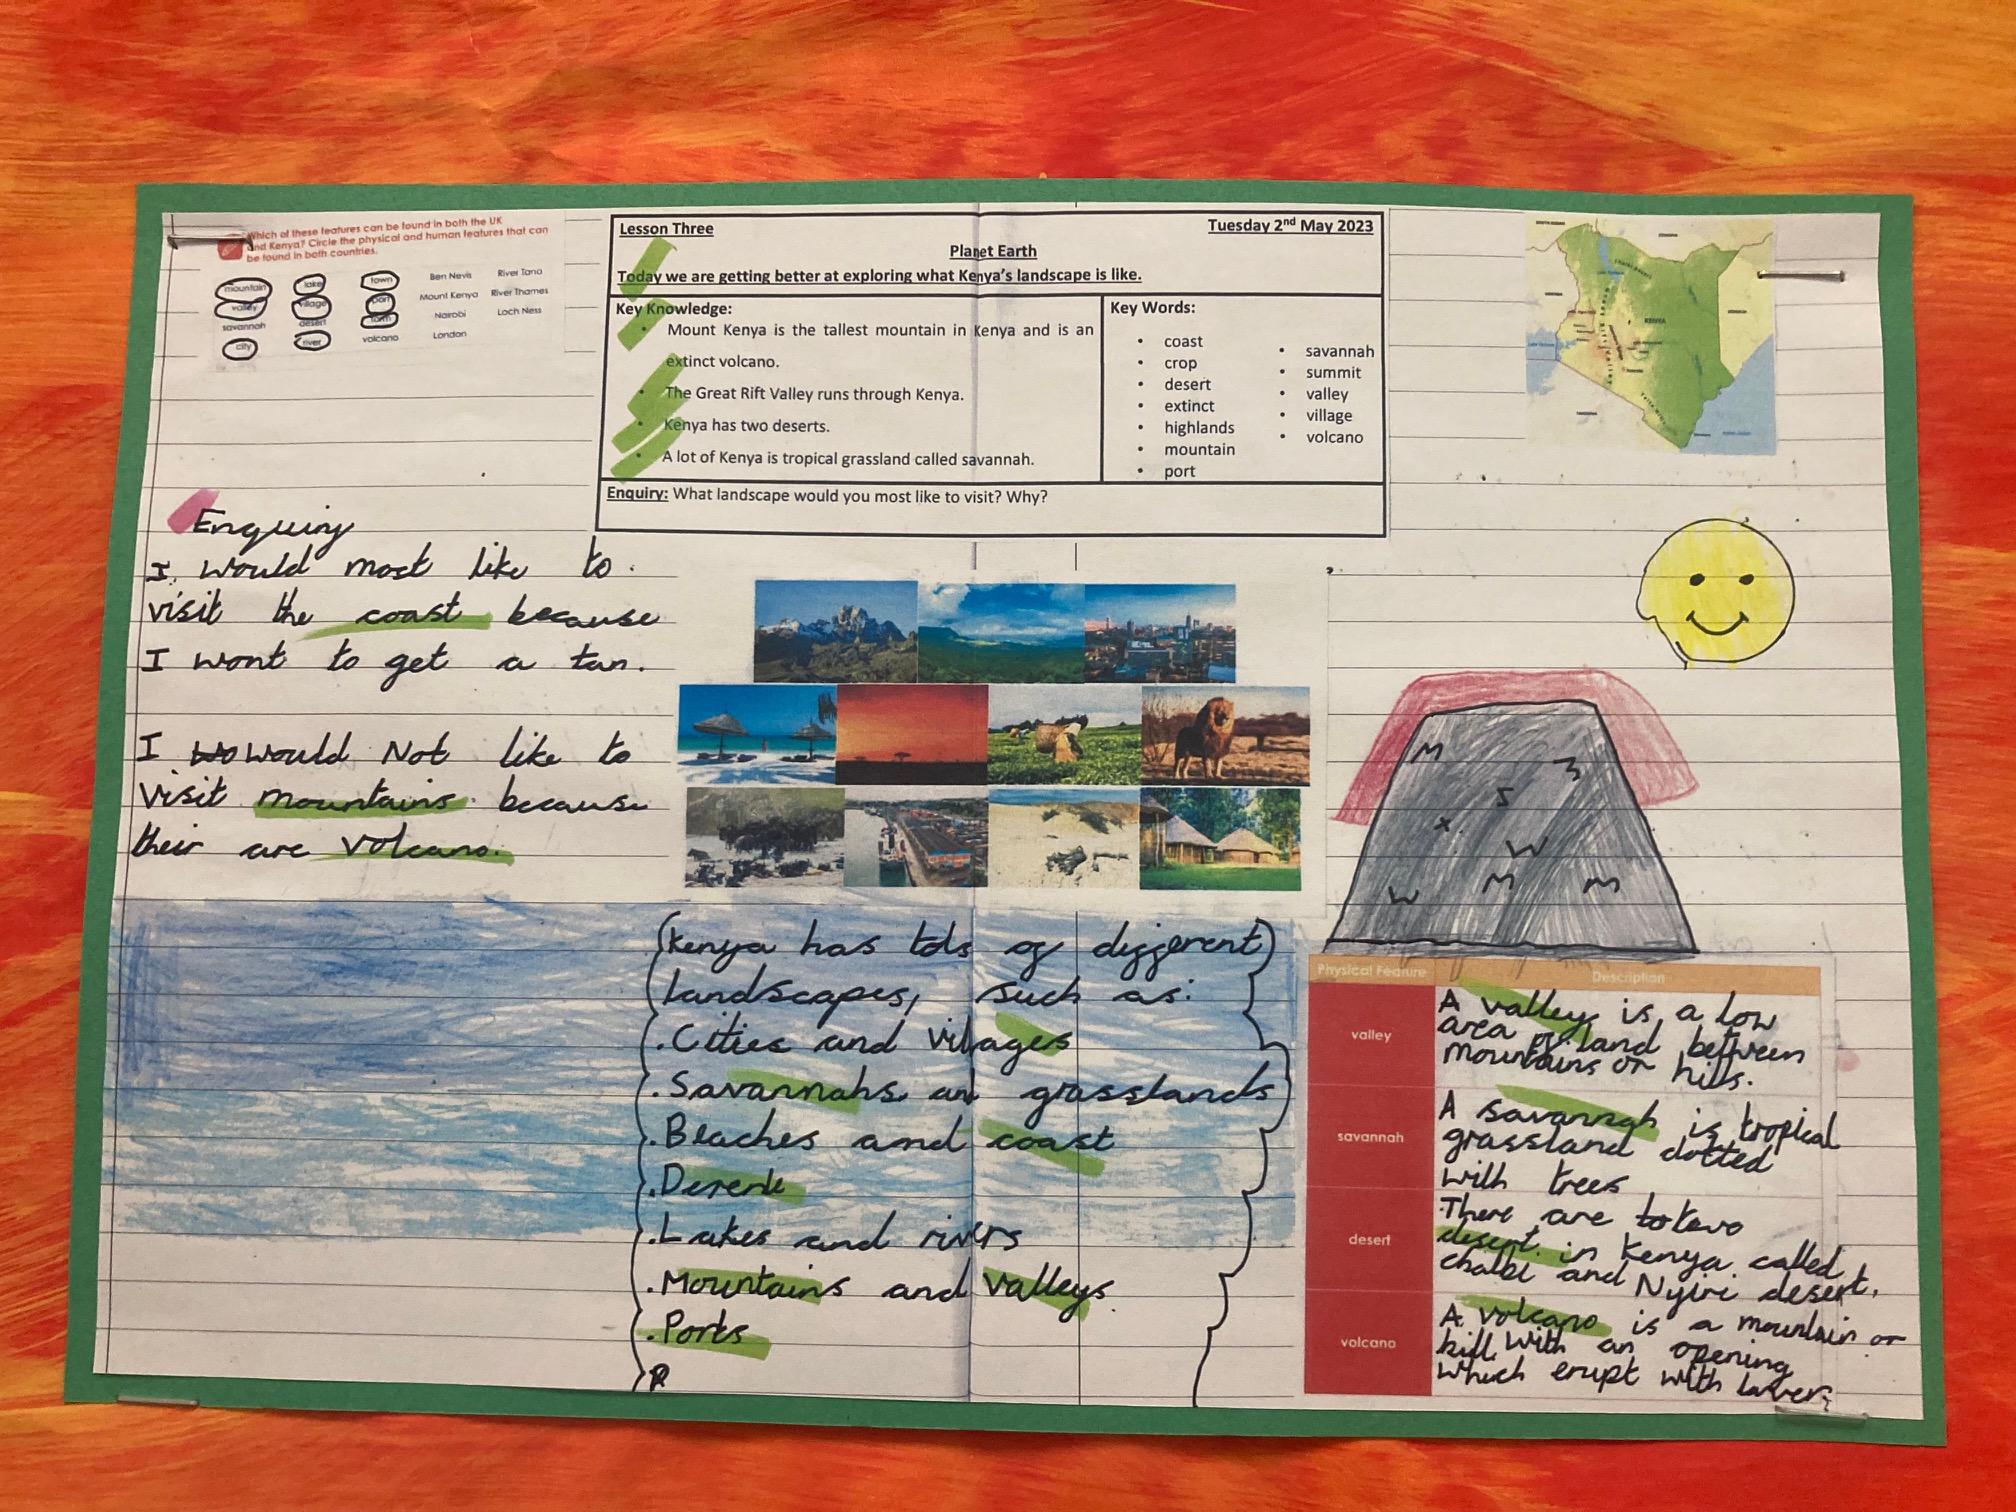 Which of these features can be found in both the UK
and Kenya? Circle the physical and human features that can
be found in both countries.
mountain lake town Ben Nevis River Tana
valley village port Mount Kenya River Thames
savannah desert farm Nairobi Loch Ness
city river volcano London
Lesson Three Tuesday 2nd May 2023
Planet Earth
Today we are getting better at exploring what Kenya's landscape is like.
Key Knowledge:
• Mount Kenya is the tallest mountain in Kenya and is an
extinct volcano.
• The Great Rift Valley runs through Kenya.
• Kenya has two deserts.
• A lot of Kenya is tropical grassland called savannah.
Key Words:
• coast
• crop
• desert
• extinct
• highlands
• mountain
• port
• savannah
• summit
• valley
• village
• volcano
Enquiry: What landscape would you most like to visit? Why?
KENYA
Enquiry
I would most like to
visit the coast because
I wont to get a tan.
I wo would Not like to
visit mountains because
their are volcano.
M
S
x
W
W M M
(Kenya has lots of different)
landscapes, such as:
.Cities and villages
.Savannahs and grasslands
.Beaches and coast
.Lakes and rivers
.Mountains and valleys.
.Ports
Physical Feature Description
valley
A valley is a low
area of land between
mountains or hills.
savannah
A savannah is tropical
grassland dotted
with trees
desert
There are to two
desert in Kenya called
chalbi and Nyiri desert.
volcano
A volcano is a mountain or
hill with an opening
which erupt with